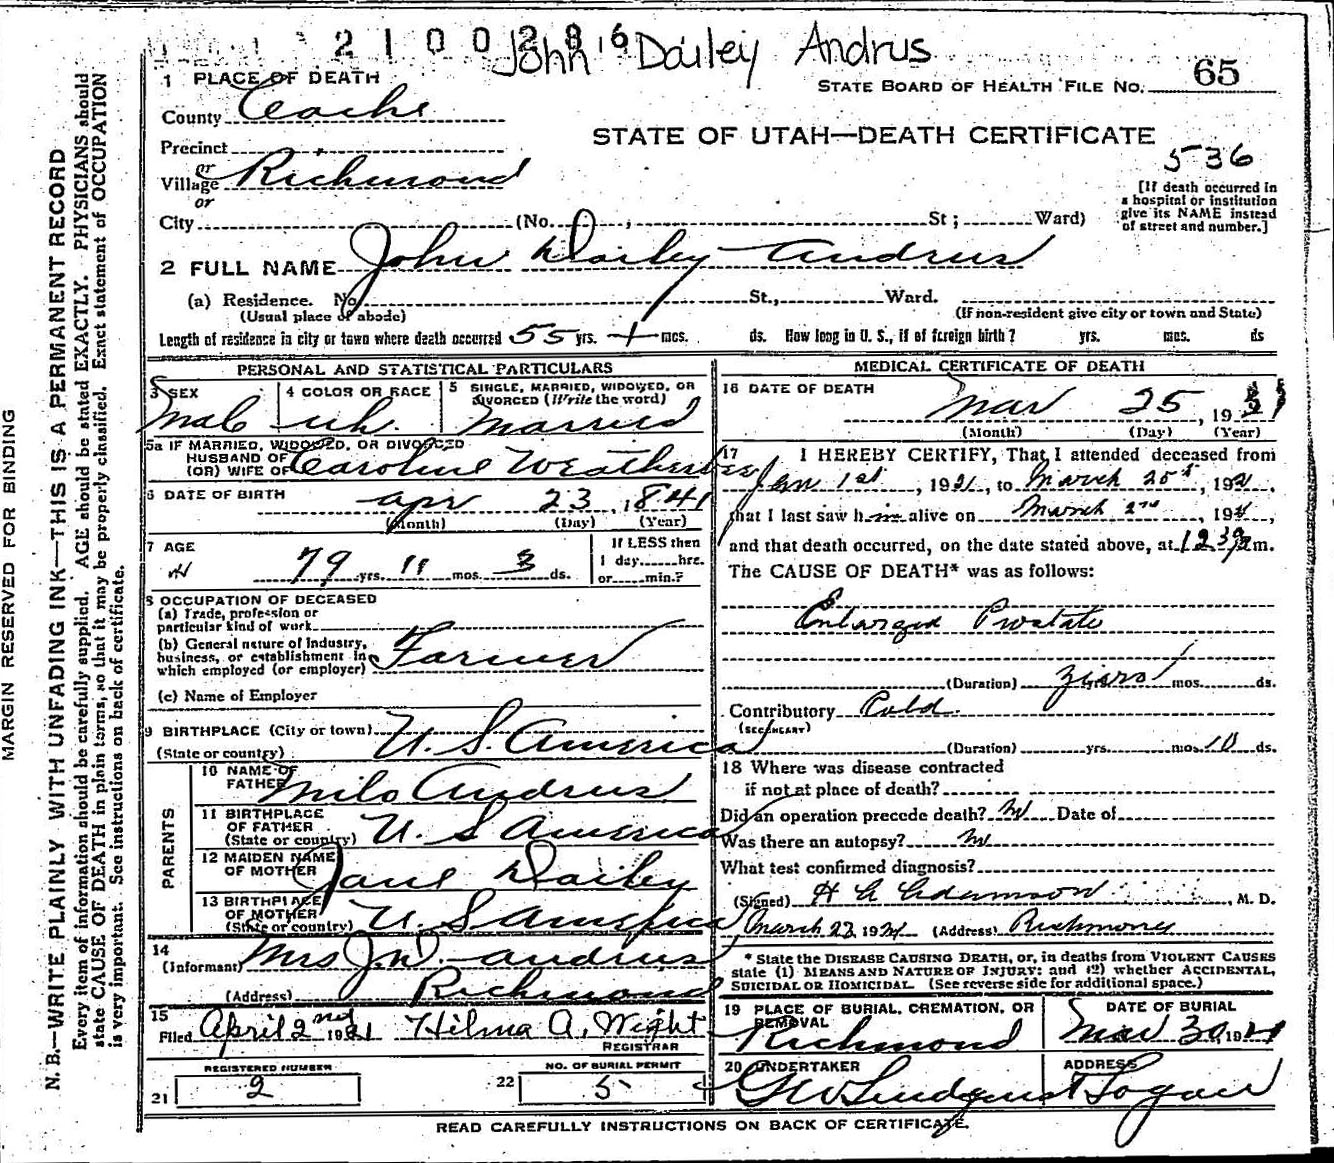 2100286 John Dailey Andrus
1 PLACE OF DEATH
STATE BOARD OF HEALTH FILE NO. 65
County Cache
STATE OF UTAH—DEATH CERTIFICATE
536
Precinct
or
Village Richmond
or
[If death occurred in
a hospital or institution
give its NAME instead
of street and number.]
City (No. St; Ward)
2 FULL NAME John Dailey Andrus
(a) Residence. No. St., Ward.
(Usual place of abode) (If non-resident give city or town and State)
Length of residence in city or town where death occurred 55 yrs. mos. ds. How long in U. S., if of foreign birth? yrs. mos. ds
PERSONAL AND STATISTICAL PARTICULARS
3 SEX
Male
4 COLOR OR RACE
wh.
5 SINGLE, MARRIED, WIDOWED, OR
DIVORCED (Write the word)
Married
5a IF MARRIED, WIDOWED, OR DIVORCED
HUSBAND OF
(OR) WIFE OF Caroline Weatherbee
6 DATE OF BIRTH Apr 23, 1841
(Month) (Day) (Year)
7 AGE
79 yrs. 11 mos. 3 ds.
If LESS then
1 day hrs.
or min.?
8 OCCUPATION OF DECEASED
(a) Trade, profession or
particular kind of work
(b) General nature of Industry,
business, or establishment in
which employed (or employer) Farmer
(c) Name of Employer
9 BIRTHPLACE (City or town)
(State or country) U. S. America
PARENTS
10 NAME OF
FATHER Milo Andrus
11 BIRTHPLACE
OF FATHER
(State or country) U. S America
12 MAIDEN NAME
OF MOTHER Jane Dailey
13 BIRTHPLACE
OF MOTHER
(State or country) U. S America
14
(Informant) Mrs J. D. Andrus
(Address) Richmond
15
Filed April 2nd 1921 Hilma A. Wight
REGISTRAR
REGISTERED NUMBER
21 2
NO. OF BURIAL PERMIT
22 5
MEDICAL CERTIFICATE OF DEATH
16 DATE OF DEATH Mar 25, 1921
(Month) (Day) (Year)
17 I HEREBY CERTIFY, That I attended deceased from
Jan 1st, 1921, to March 25th, 1921,
that I last saw him alive on March 2nd, 1921,
and that death occurred, on the date stated above, at 12 30 a m.
The CAUSE OF DEATH* was as follows:
Enlarged Prostate
(Duration) years mos. ds.
Contributory Cold.
(SECONDARY)
(Duration) yrs. mos. 10 ds.
18 Where was disease contracted
if not at place of death?
Did an operation precede death? no Date of
Was there an autopsy? no
What test confirmed diagnosis?
(Signed) H A Adamson, M. D.
March 1921 (Address) Richmond
* State the DISEASE CAUSING DEATH, or, in deaths from VIOLENT CAUSES
state (1) MEANS AND NATURE OF INJURY: and (2) whether ACCIDENTAL,
SUICIDAL OR HOMICIDAL. (See reverse side for additional space.)
19 PLACE OF BURIAL, CREMATION, OR
REMOVAL
Richmond
DATE OF BURIAL
Mar 30, 1921
20 UNDERTAKER
G W Lindquist
ADDRESS
Logan
READ CAREFULLY INSTRUCTIONS ON BACK OF CERTIFICATE.
MARGIN RESERVED FOR BINDING
N. B.—WRITE PLAINLY WITH UNFADING INK—THIS IS A PERMANENT RECORD
Every item of information should be carefully supplied. AGE should be stated EXACTLY. PHYSICIANS should
state CAUSE OF DEATH in plain terms, so that it may be properly classified. Exact statement of OCCUPATION
is very important. See instructions on back of certificate.